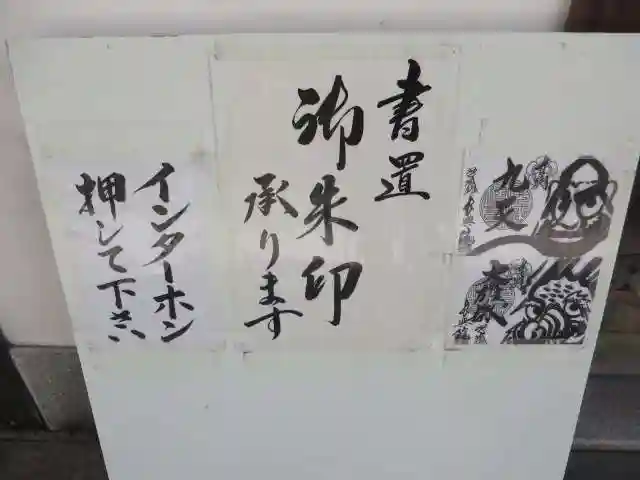 書置
御朱印
承ります
インターホン
押して下さい
九天